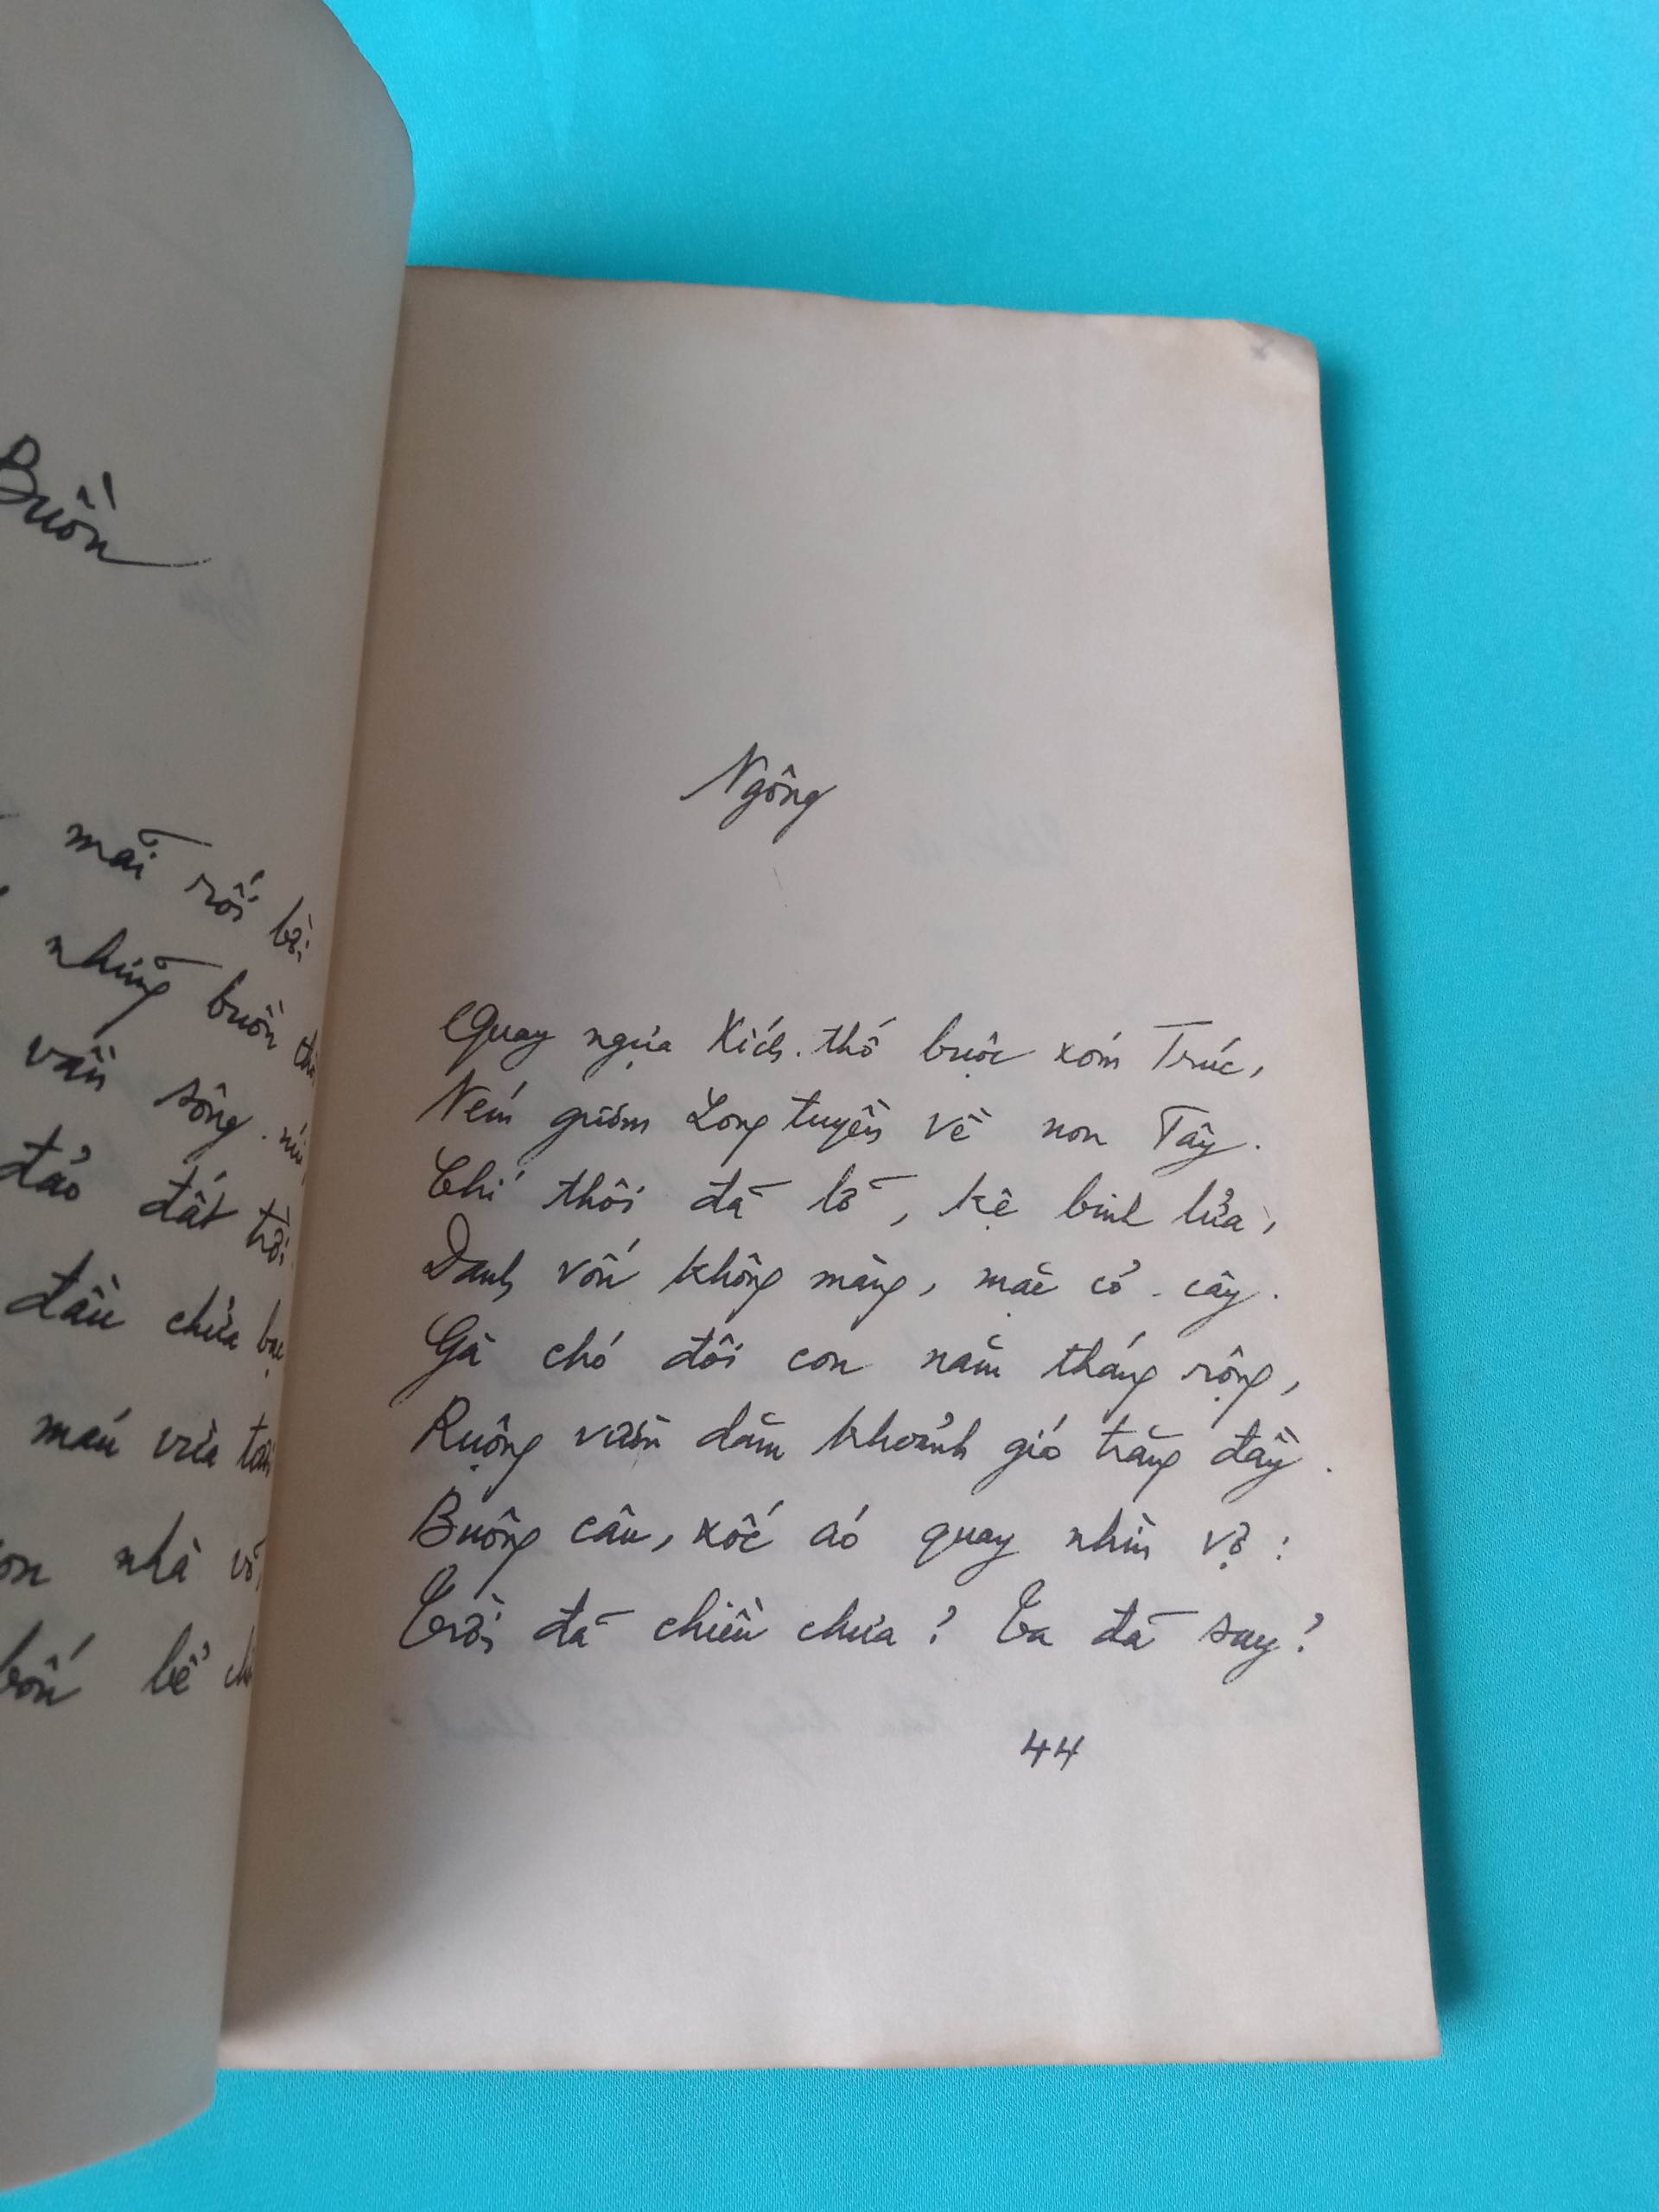 Buồn
mãi rối bời
những buồn
vẫn sông
đảo đất trời
đầu chửa
máu vừa
nhà
bốn bể
Ngông
Quay ngựa Xích-thố buộc xóm Trúc,
Ném gươm Long tuyền về non Tây.
Chí thôi đã lỡ, kệ binh lửa,
Danh vốn không màng, mặc cỏ-cây.
Gà chó đôi con năm tháng rộng,
Ruộng vườn dăm khoảnh gió trăng đầy.
Buông câu, xốc áo quay nhìn vợ:
Trời đã chiều chưa? Ta đã say!
44